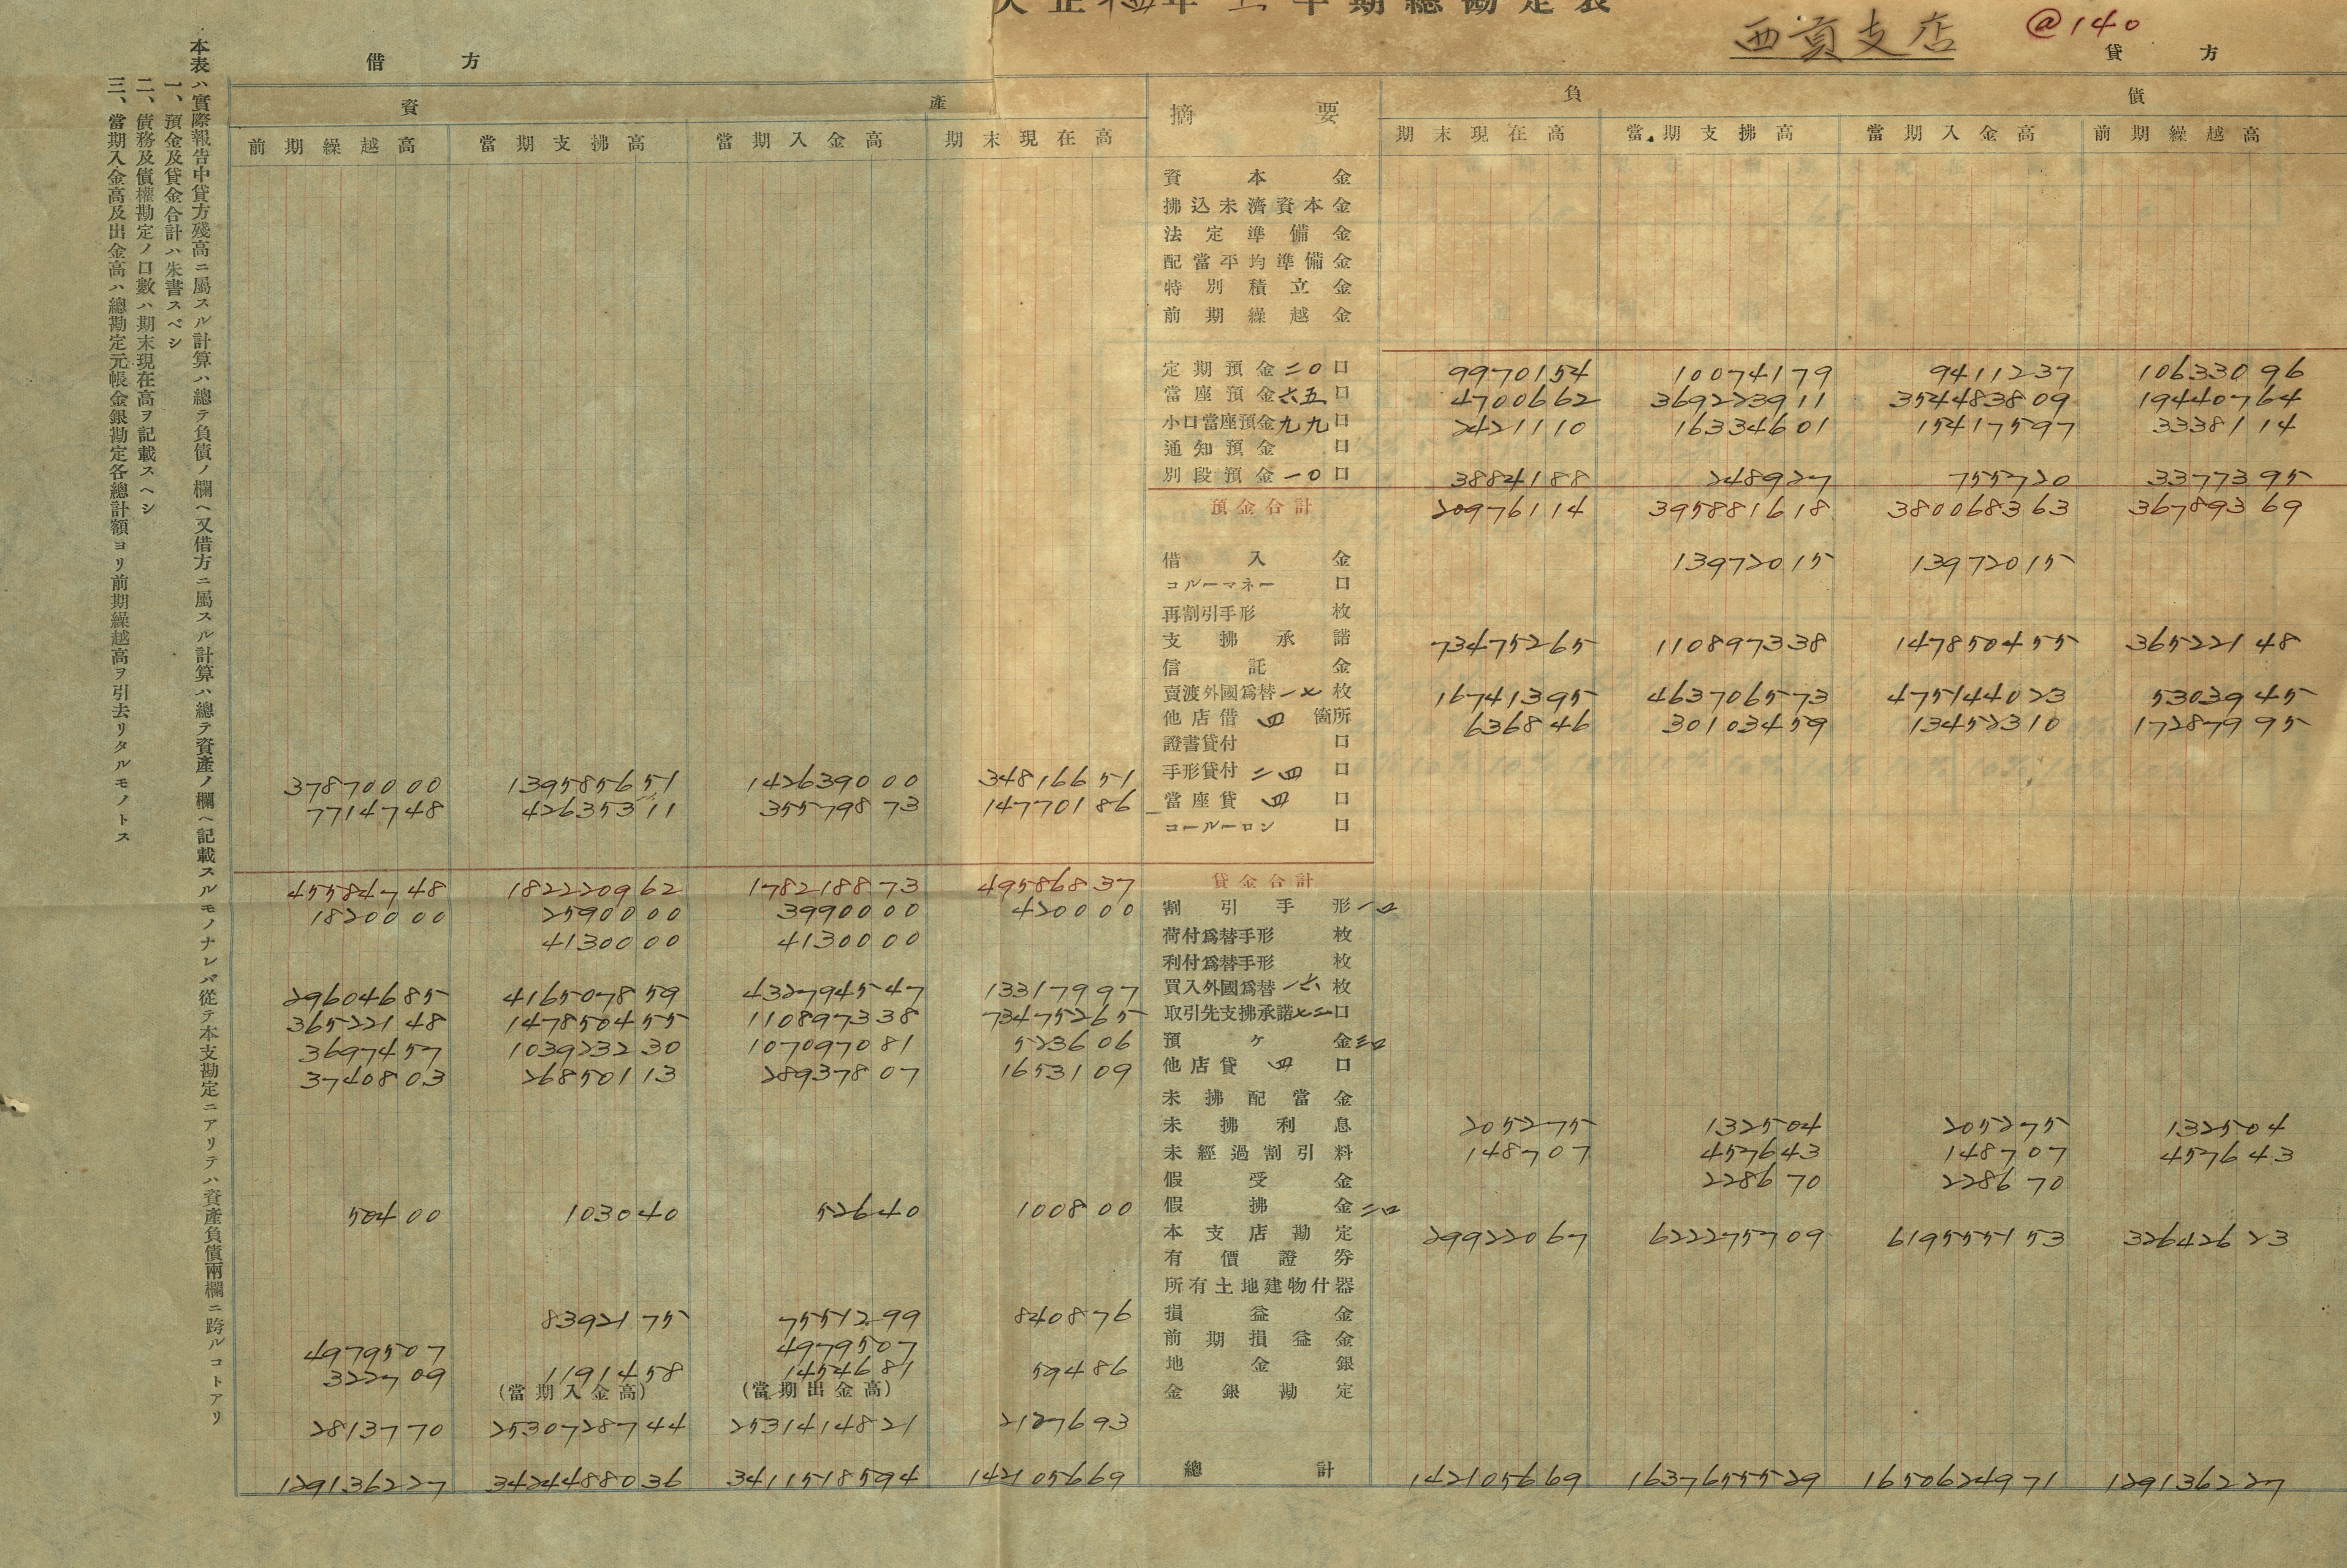 正 年 上 半 期 總 勘 定 表
西貢支店
@140
借 方
貸 方
資 產
摘 要
負 債
前期繰越高 當期支拂高 當期入金高 期末現在高 期末現在高 當期支拂高 當期入金高 前期繰越高
資本金
拂込未濟資本金
法定準備金
配當平均準備金
特別積立金
前期繰越金
定期預金 二〇 口 9970154 10074179 9411237 10633096
當座預金 六五 口 4700662 369223911 354483809 19440764
小口當座預金 九九 口 2421110 16334601 15417597 3338114
通知預金 口
別段預金 一〇 口 3884188 248927 755720 3377395
預金合計 20976114 395881618 380068363 36789369
借入金 13972015 13972015
コルーマネー 口
再割引手形 枚
支拂承諾 73475265 110897338 147850455 36522148
信託金
賣渡外國爲替 一七 枚 16741395 463706573 475144023 5303945
他店借 四 箇所 636846 30103459 13452310 17287995
證書貸付 口
37870000 139585651 142639000 34816651 手形貸付 二四 口
7714748 42635311 35579873 14770186 當座貸 四 口
コールーロン 口
45584748 182220962 178218873 49586837 貸金合計
1820000 2590000 3990000 420000 割引手形 一口
4130000 4130000 荷付爲替手形 枚
利付爲替手形 枚
29604685 416507859 432794547 13317997 買入外國爲替 一六 枚
36522148 147850455 110897338 73475265 取引先支拂承諾 七二 口
3697457 103923230 107097081 523606 預ケ金 三口
3740803 26850113 28937807 1653109 他店貸 四 口
未拂配當金
未拂利息 205275 132504 205275 132504
未經過割引料 148707 457643 148707 457643
假受金 228670 228670
50400 103040 52640 100800 假拂金 二口
本支店勘定 29922067 622275709 619555153 32642623
有價證券
所有土地建物什器
8392175 7551299 840876 損益金
4979507 4979507 前期損益金
322709 1191458 1454681 59486 地金銀
(當期入金高) (當期出金高) 金銀勘定
2813770 2530728744 2531414821 2127693
129136227 3424488036 3411518594 142105669 總計 142105669 1637655529 1650624971 129136227
本表ハ實際報告中貸方殘高ニ屬スル計算ハ總テ負債ノ欄ヘ又借方ニ屬スル計算ハ總テ資產ノ欄ヘ記載スルモノナレバ從テ本支勘定ニアリテハ資產負債兩欄ニ跨ルコトアリ
一、預金及貸金合計ハ朱書スベシ
二、債務及債權勘定ノ口數ハ期末現在高ヲ記載スヘシ
三、當期入金高及出金高ハ總勘定元帳金銀勘定各總計額ヨリ前期繰越高ヲ引去リタルモノトス